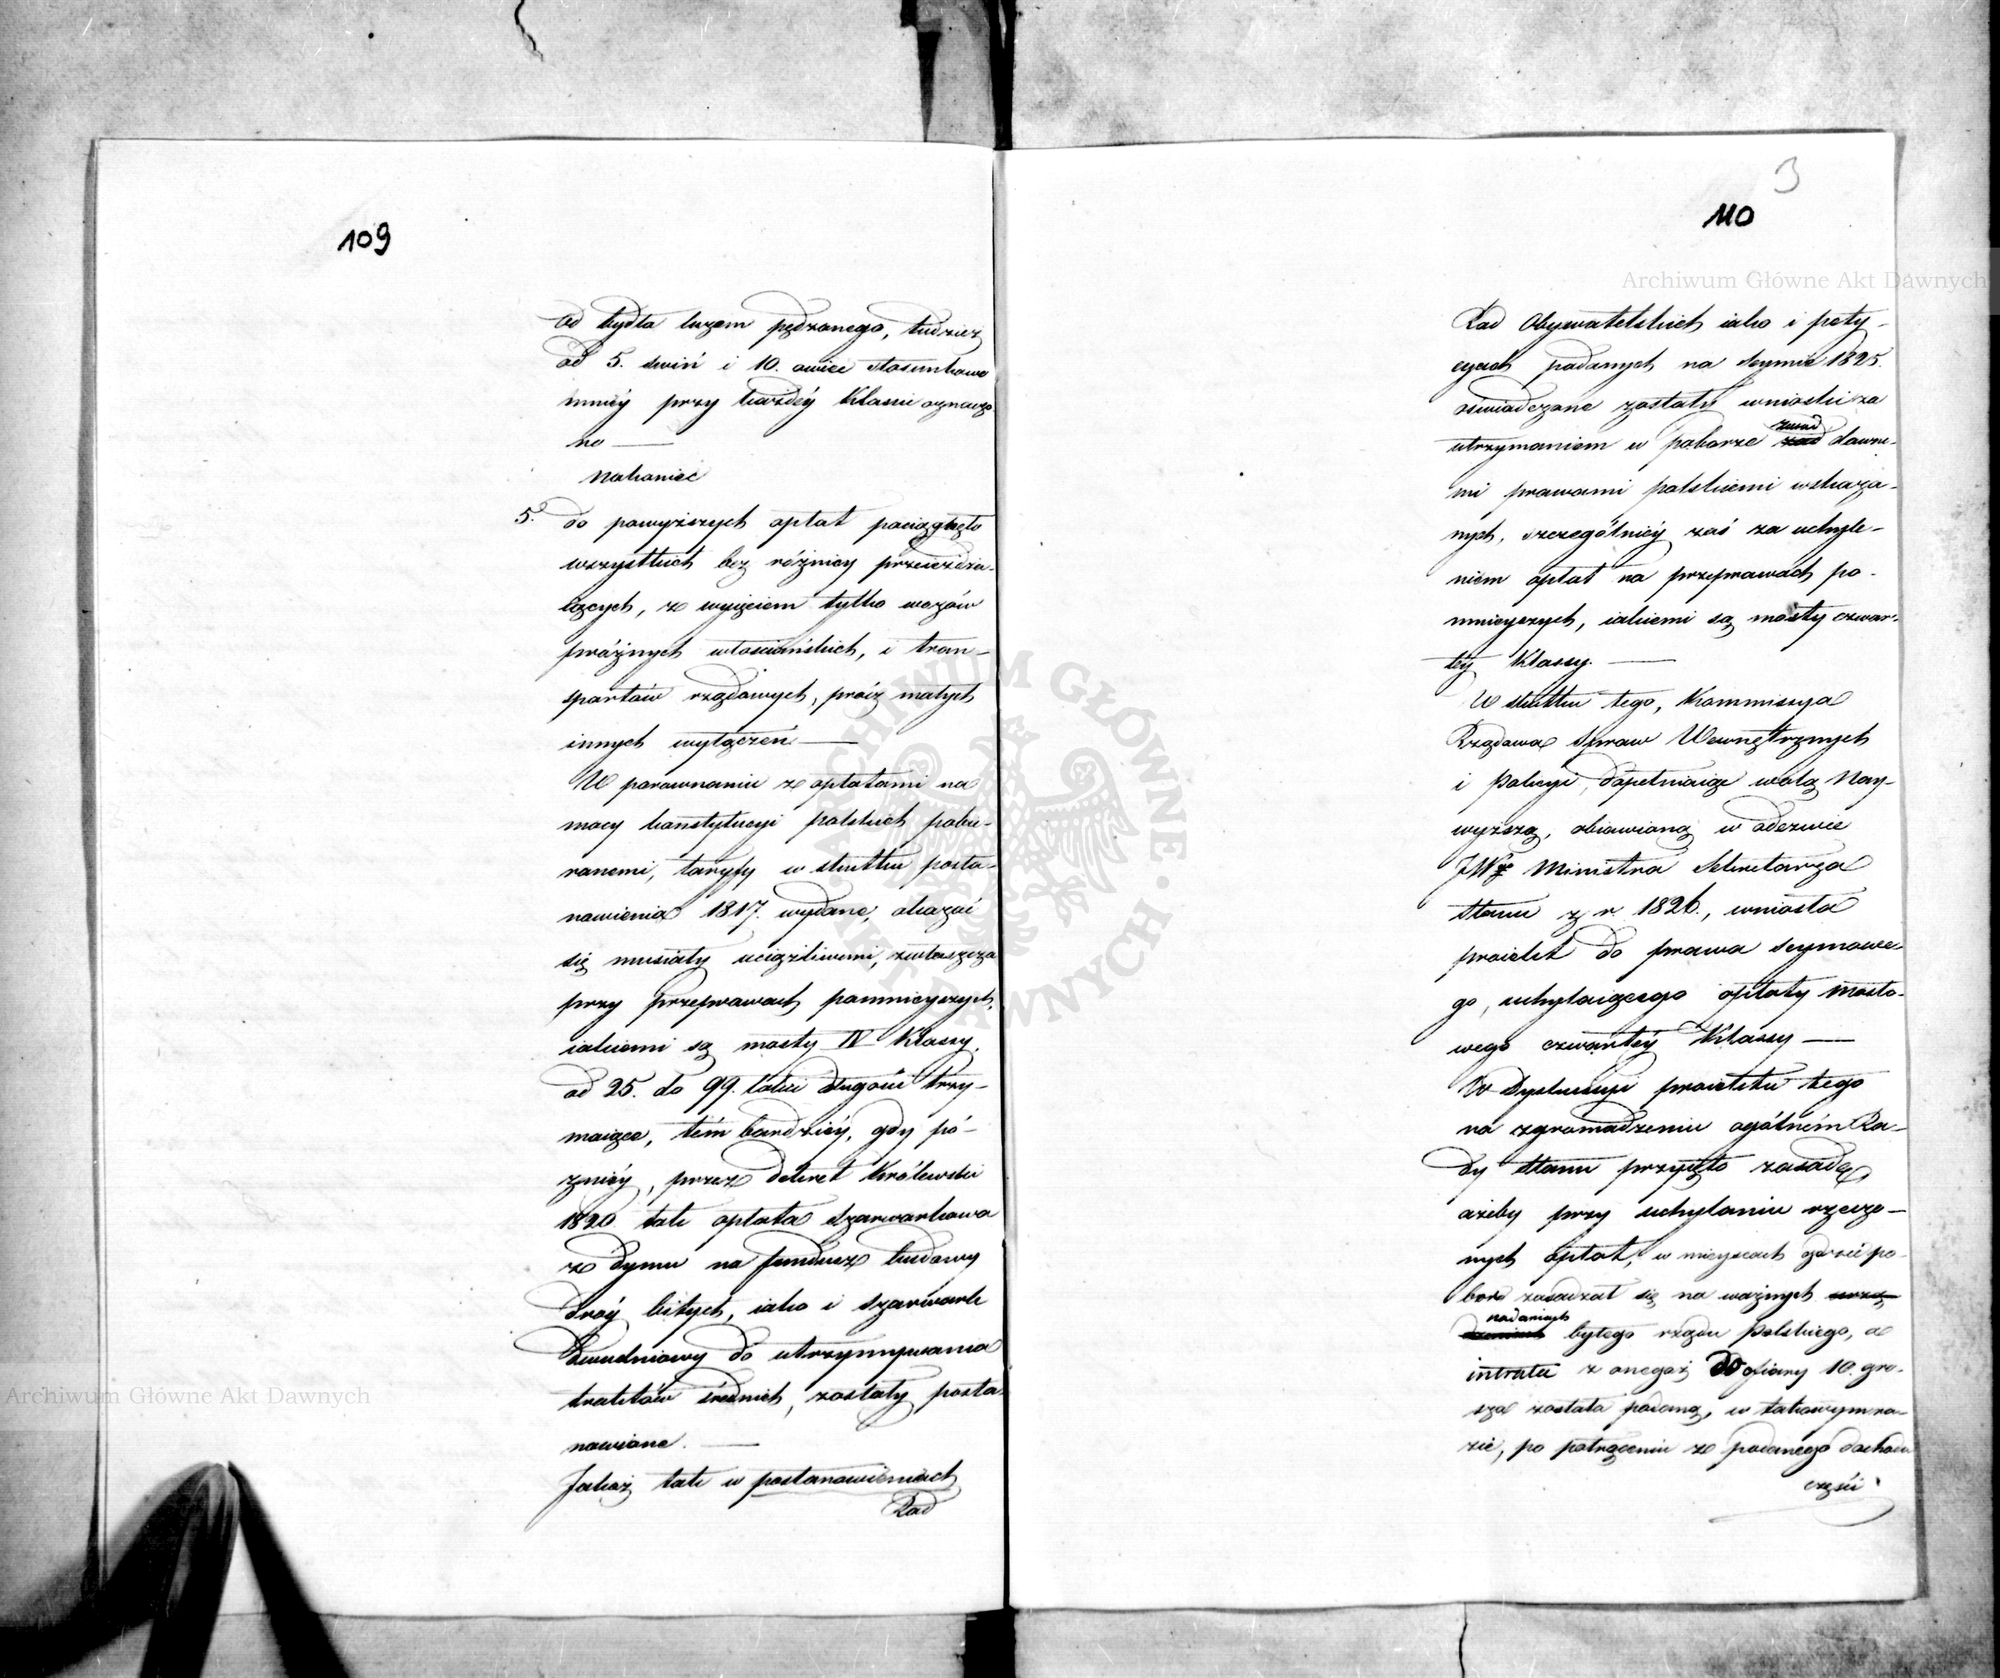 109
od bydła luzem pędzonego, tudzież
od 5. swiń i 10. owiec stosunkowo
mniéy przy każdéy klassie oznaczo
no —
Nakoniec
5. do powyższych opłat pociągnięto
wszystkich bez różnicy przeieżdża-
iących, z wyięciem tylko wozów
próżnych włosciańskich, i tran-
sportów rządowych, prócz małych
innych wyłączeń —
W porownaniu z opłatami na
mocy konstytucyi polskich pobie-
ranemi, taryfy w skutku posta-
nowienia 1817. wydane, okazać
się musiały uciążliwemi, zwłaszcza
przy przeprawach pomnieyszych,
iakiemi są mosty IV Klassy,
od 25. do 99. łokci długości trzy-
maiące, tém bardziéy, gdy pó-
zniéy, przez dekret Królewski
1820 tak opłata szarwarkowa
z dymu na fundusz budowy
dróg bitych, iako i szarwark
dwudniowy do utrzymywania
traktów średnich, zostały posta-
nowione. —
Jakoż tak w postanowieniach
Rad
3
110
Rad Obywatelskich iako i pety-
cyach podanych na Seymie 1825.
oświadczone zostały wnioski za
utrzymaniem w poborze zasad dawne-
mi prawami polskiemi wskaza-
nych, szczególniéy zaś za uchyle-
niem opłat na przeprawach po-
mnieyszych, iakiemi są mosty czwar-
téy Klassy. —
W skutku tego, Kommissya
Rządowa Spraw Wewnętrznych
i Policyi, dopełniaiąc wolą Nay-
wyższą, obiawioną w odezwie
JWgo Ministra Sekretarza
Stanu z r. 1826., wniosła
proiekt do prawa seymowe-
go, uchylaiącego opłaty mosto-
wego czwartéy Klassy —
W dyskussyi proiektu tego
na zgromadzeniu ogólném Ra-
dy Stanu przyięto zasadę,
ażeby przy uchylaniu rzeczo-
nych opłat, w mieyscach gdzie po-
bor zasadzał się na ważnych
nadaniach byłego rządu Polskiego, a
intrata z onegoż do ofiary 10. gro-
sza została podaną, w takowym ra-
zie, po potrąceniu z podanego dochodu
części
Archiwum Główne Akt Dawnych
Archiwum Główne Akt Dawnych
ARCHIWUM GŁÓWNE AKT DAWNYCH